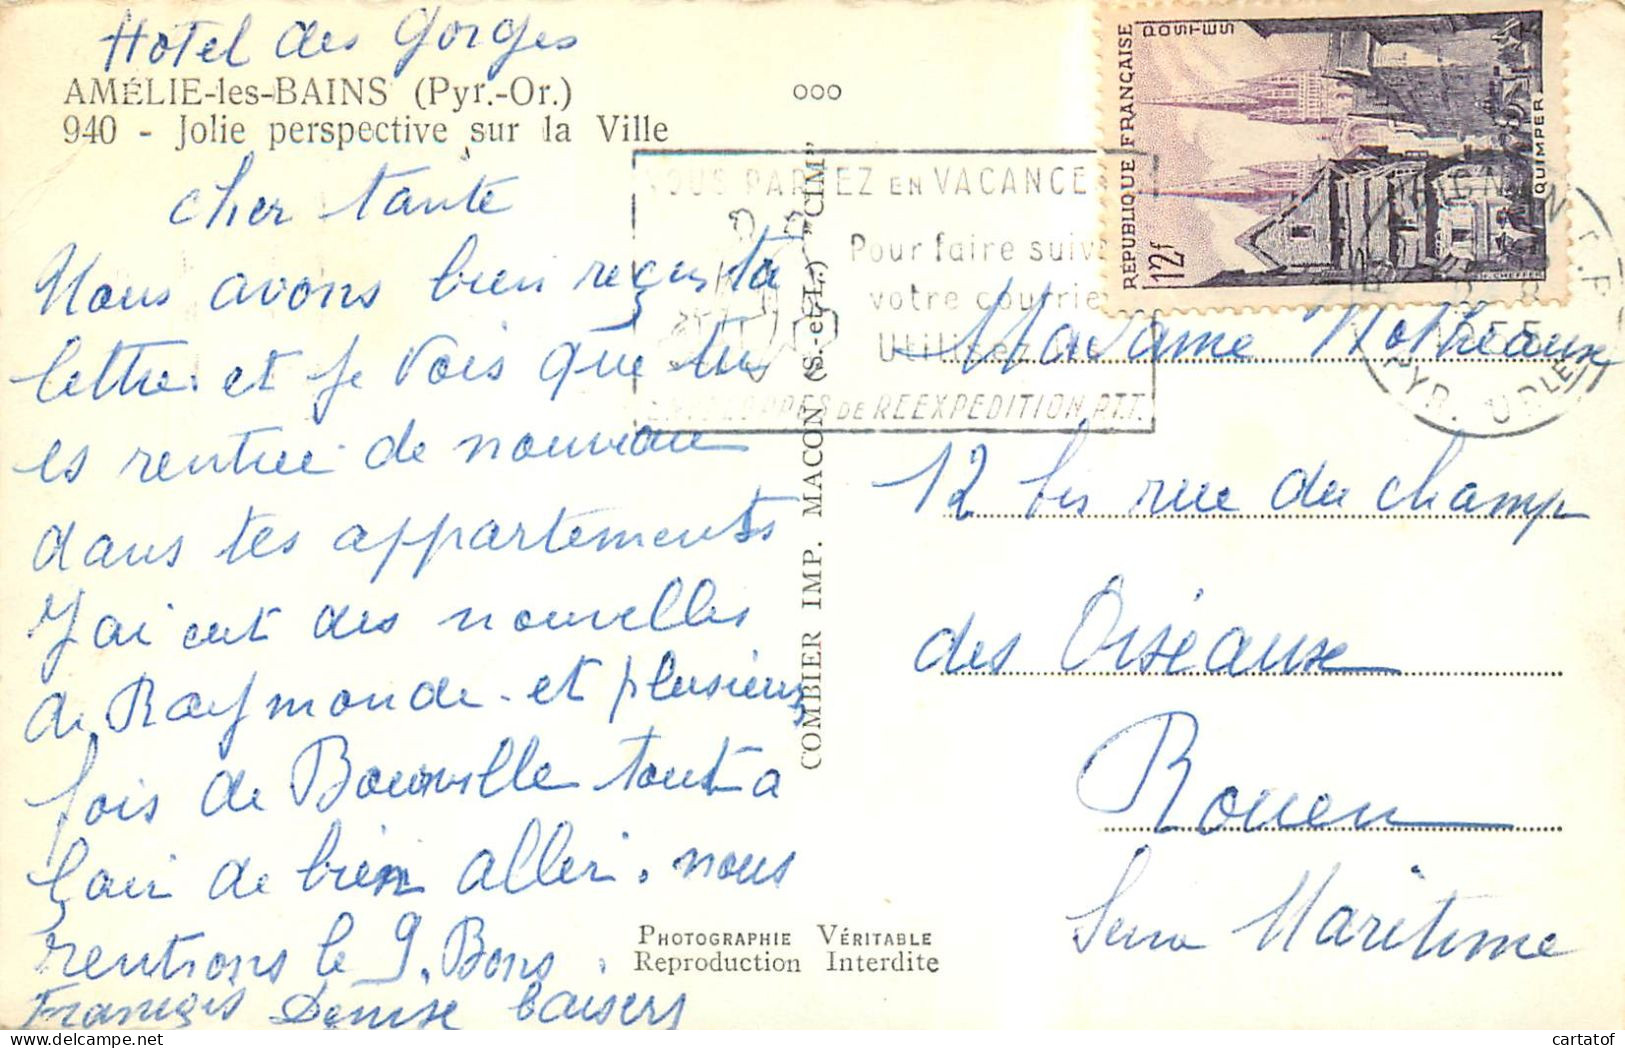 Hotel des Gorges
AMÉLIE-les-BAINS (Pyr.-Or.)
940 - Jolie perspective sur la Ville
cher tante
Nous avons bien reçus ta
lettre. et je vois que tu
es rentrée de nouveau
dans tes appartements
J'ai eut des nouvelles
de Raymonde. et plusieurs
fois de Bouville tout a
l'air de bien aller. nous
rentrons le 9. Bons
François Denise baisers
ooo
VOUS PARTEZ EN VACANCES
Pour faire suivre
votre courrier
Utilisez les
ENVELOPPES DE REEXPEDITION P.T.T.
COMBIER IMP. MACON (S.-et-L.) "CIM"
PHOTOGRAPHIE VÉRITABLE
Reproduction Interdite
RÉPUBLIQUE FRANÇAISE
POSTES
12f
QUIMPER
PERPIGNAN r.P.
PYR. ORLES
Madame
12 bis rue du champ
des Oiseaux
Rouen
Seine Maritime
cartatof